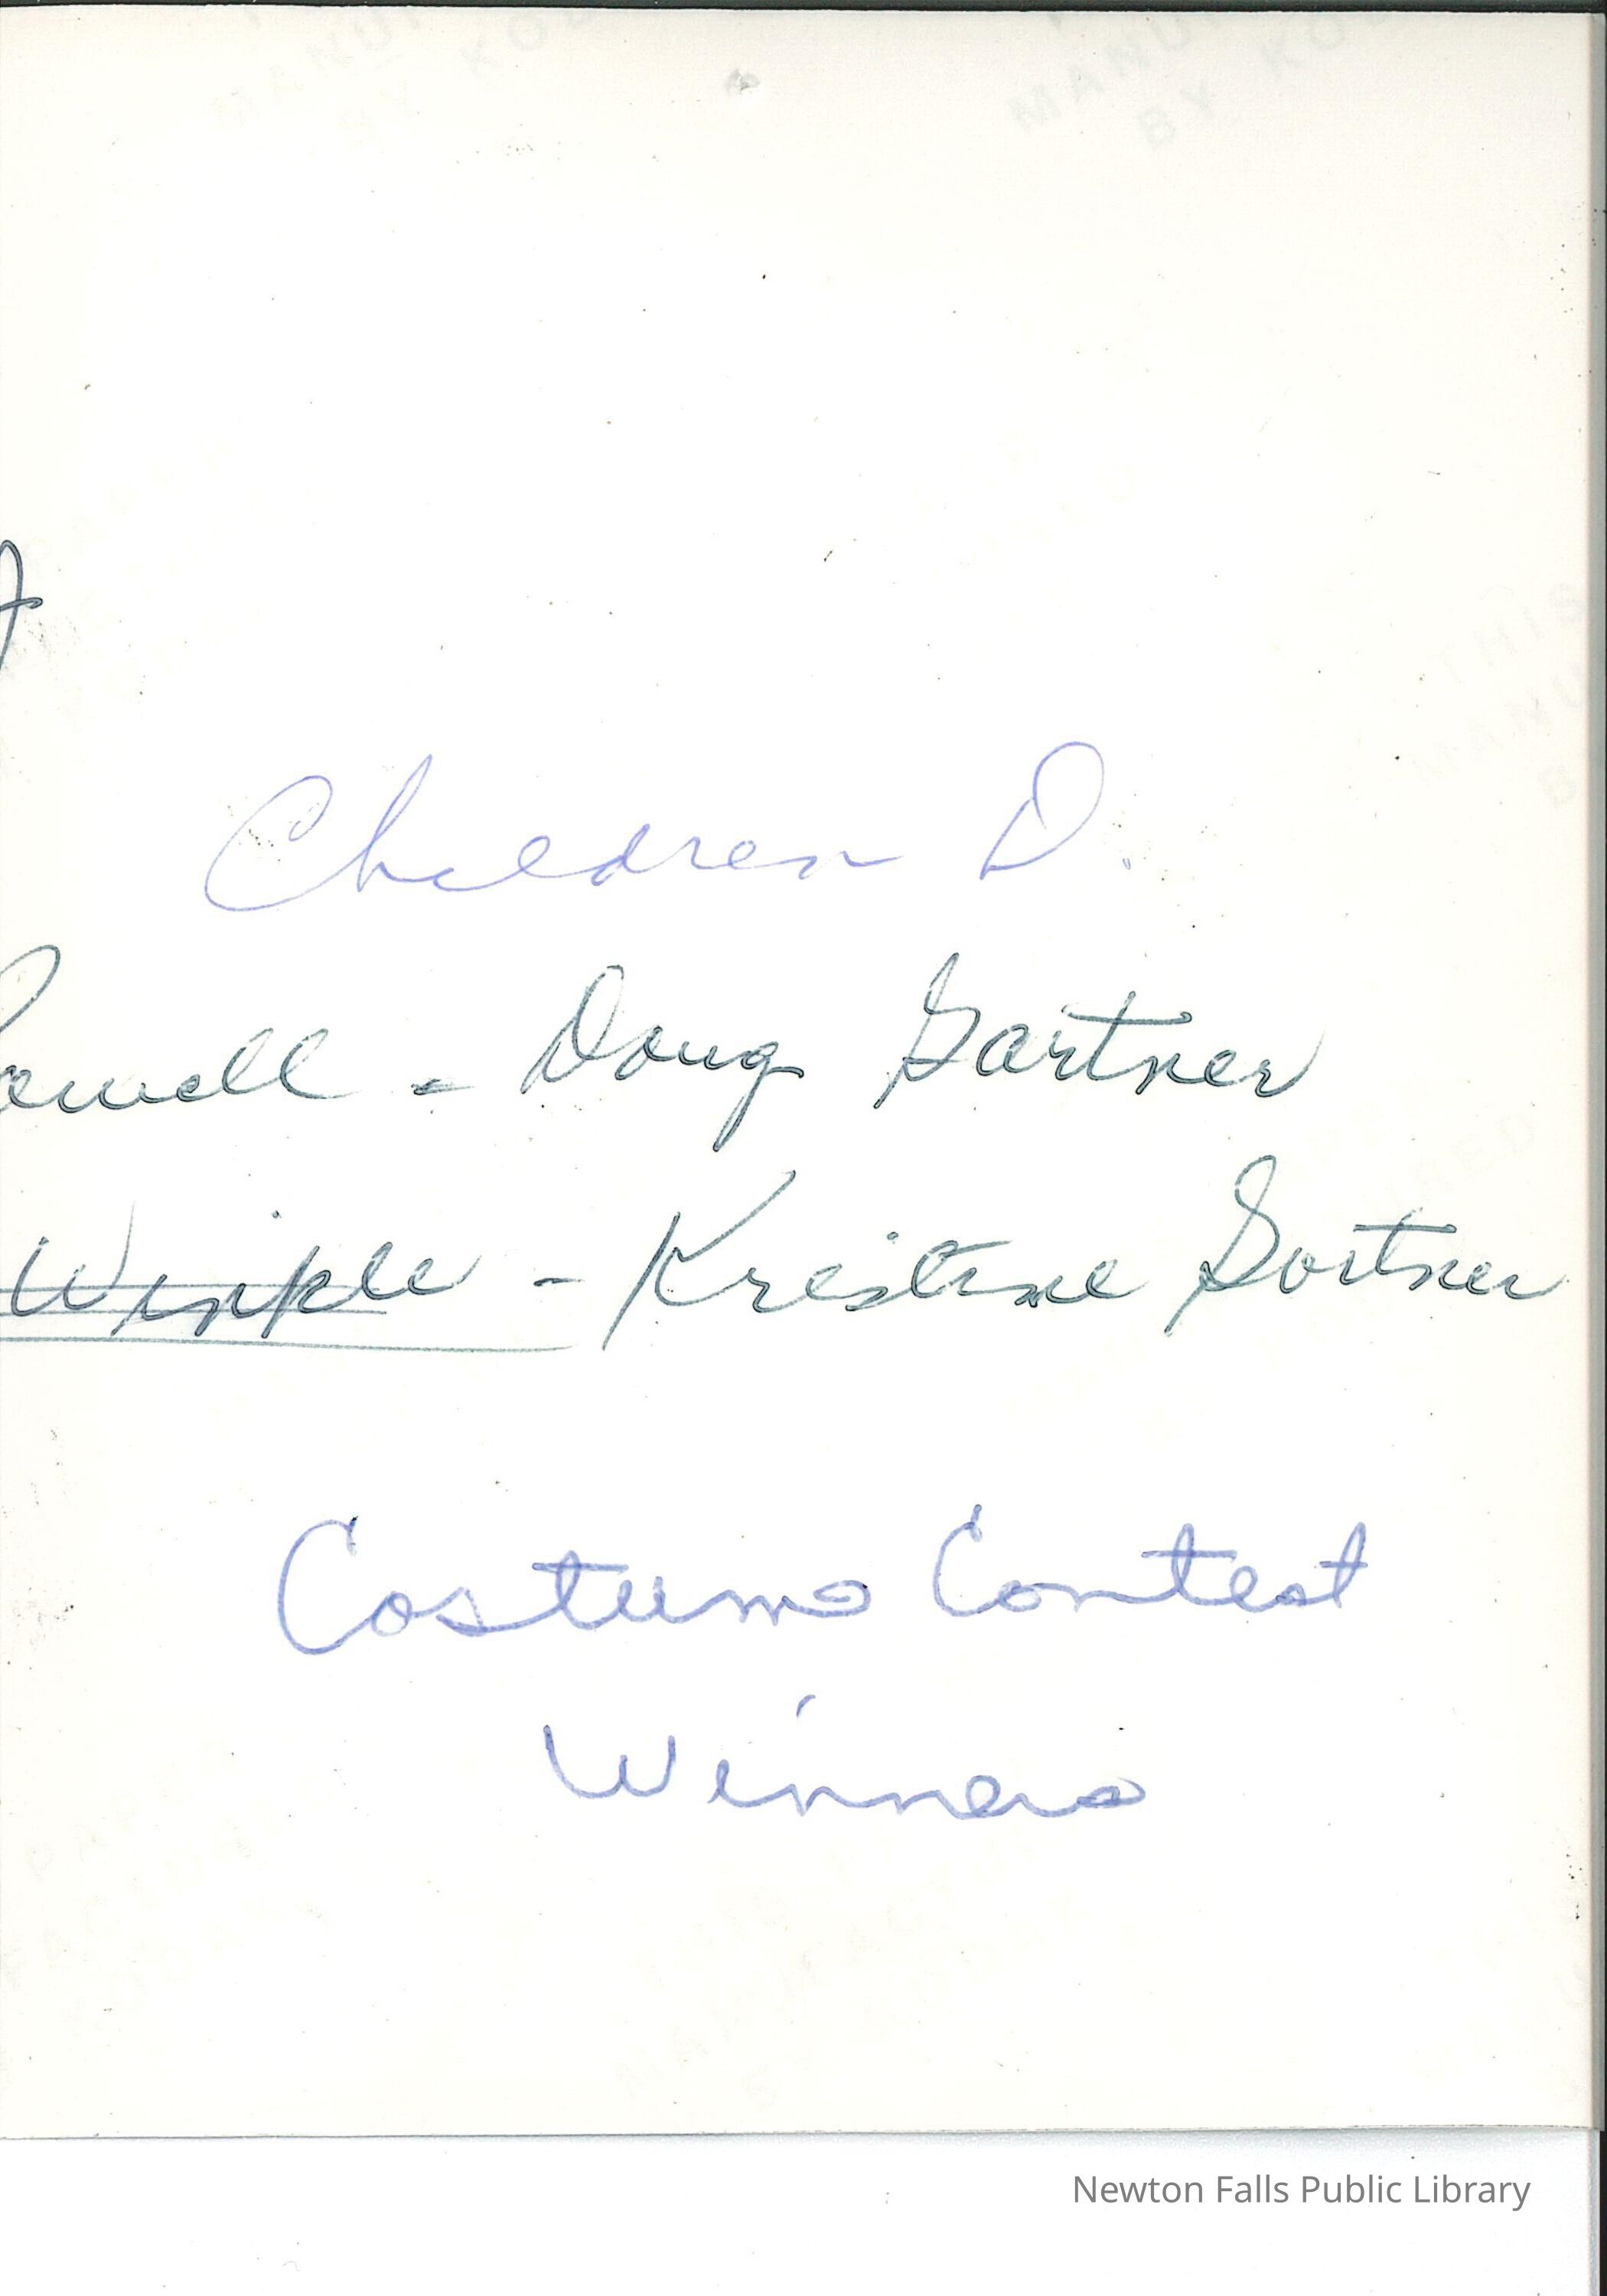 Children D.
Doug Gartner
Winkle - Kristine Gartner
Costume Contest
Winners
Newton Falls Public Library